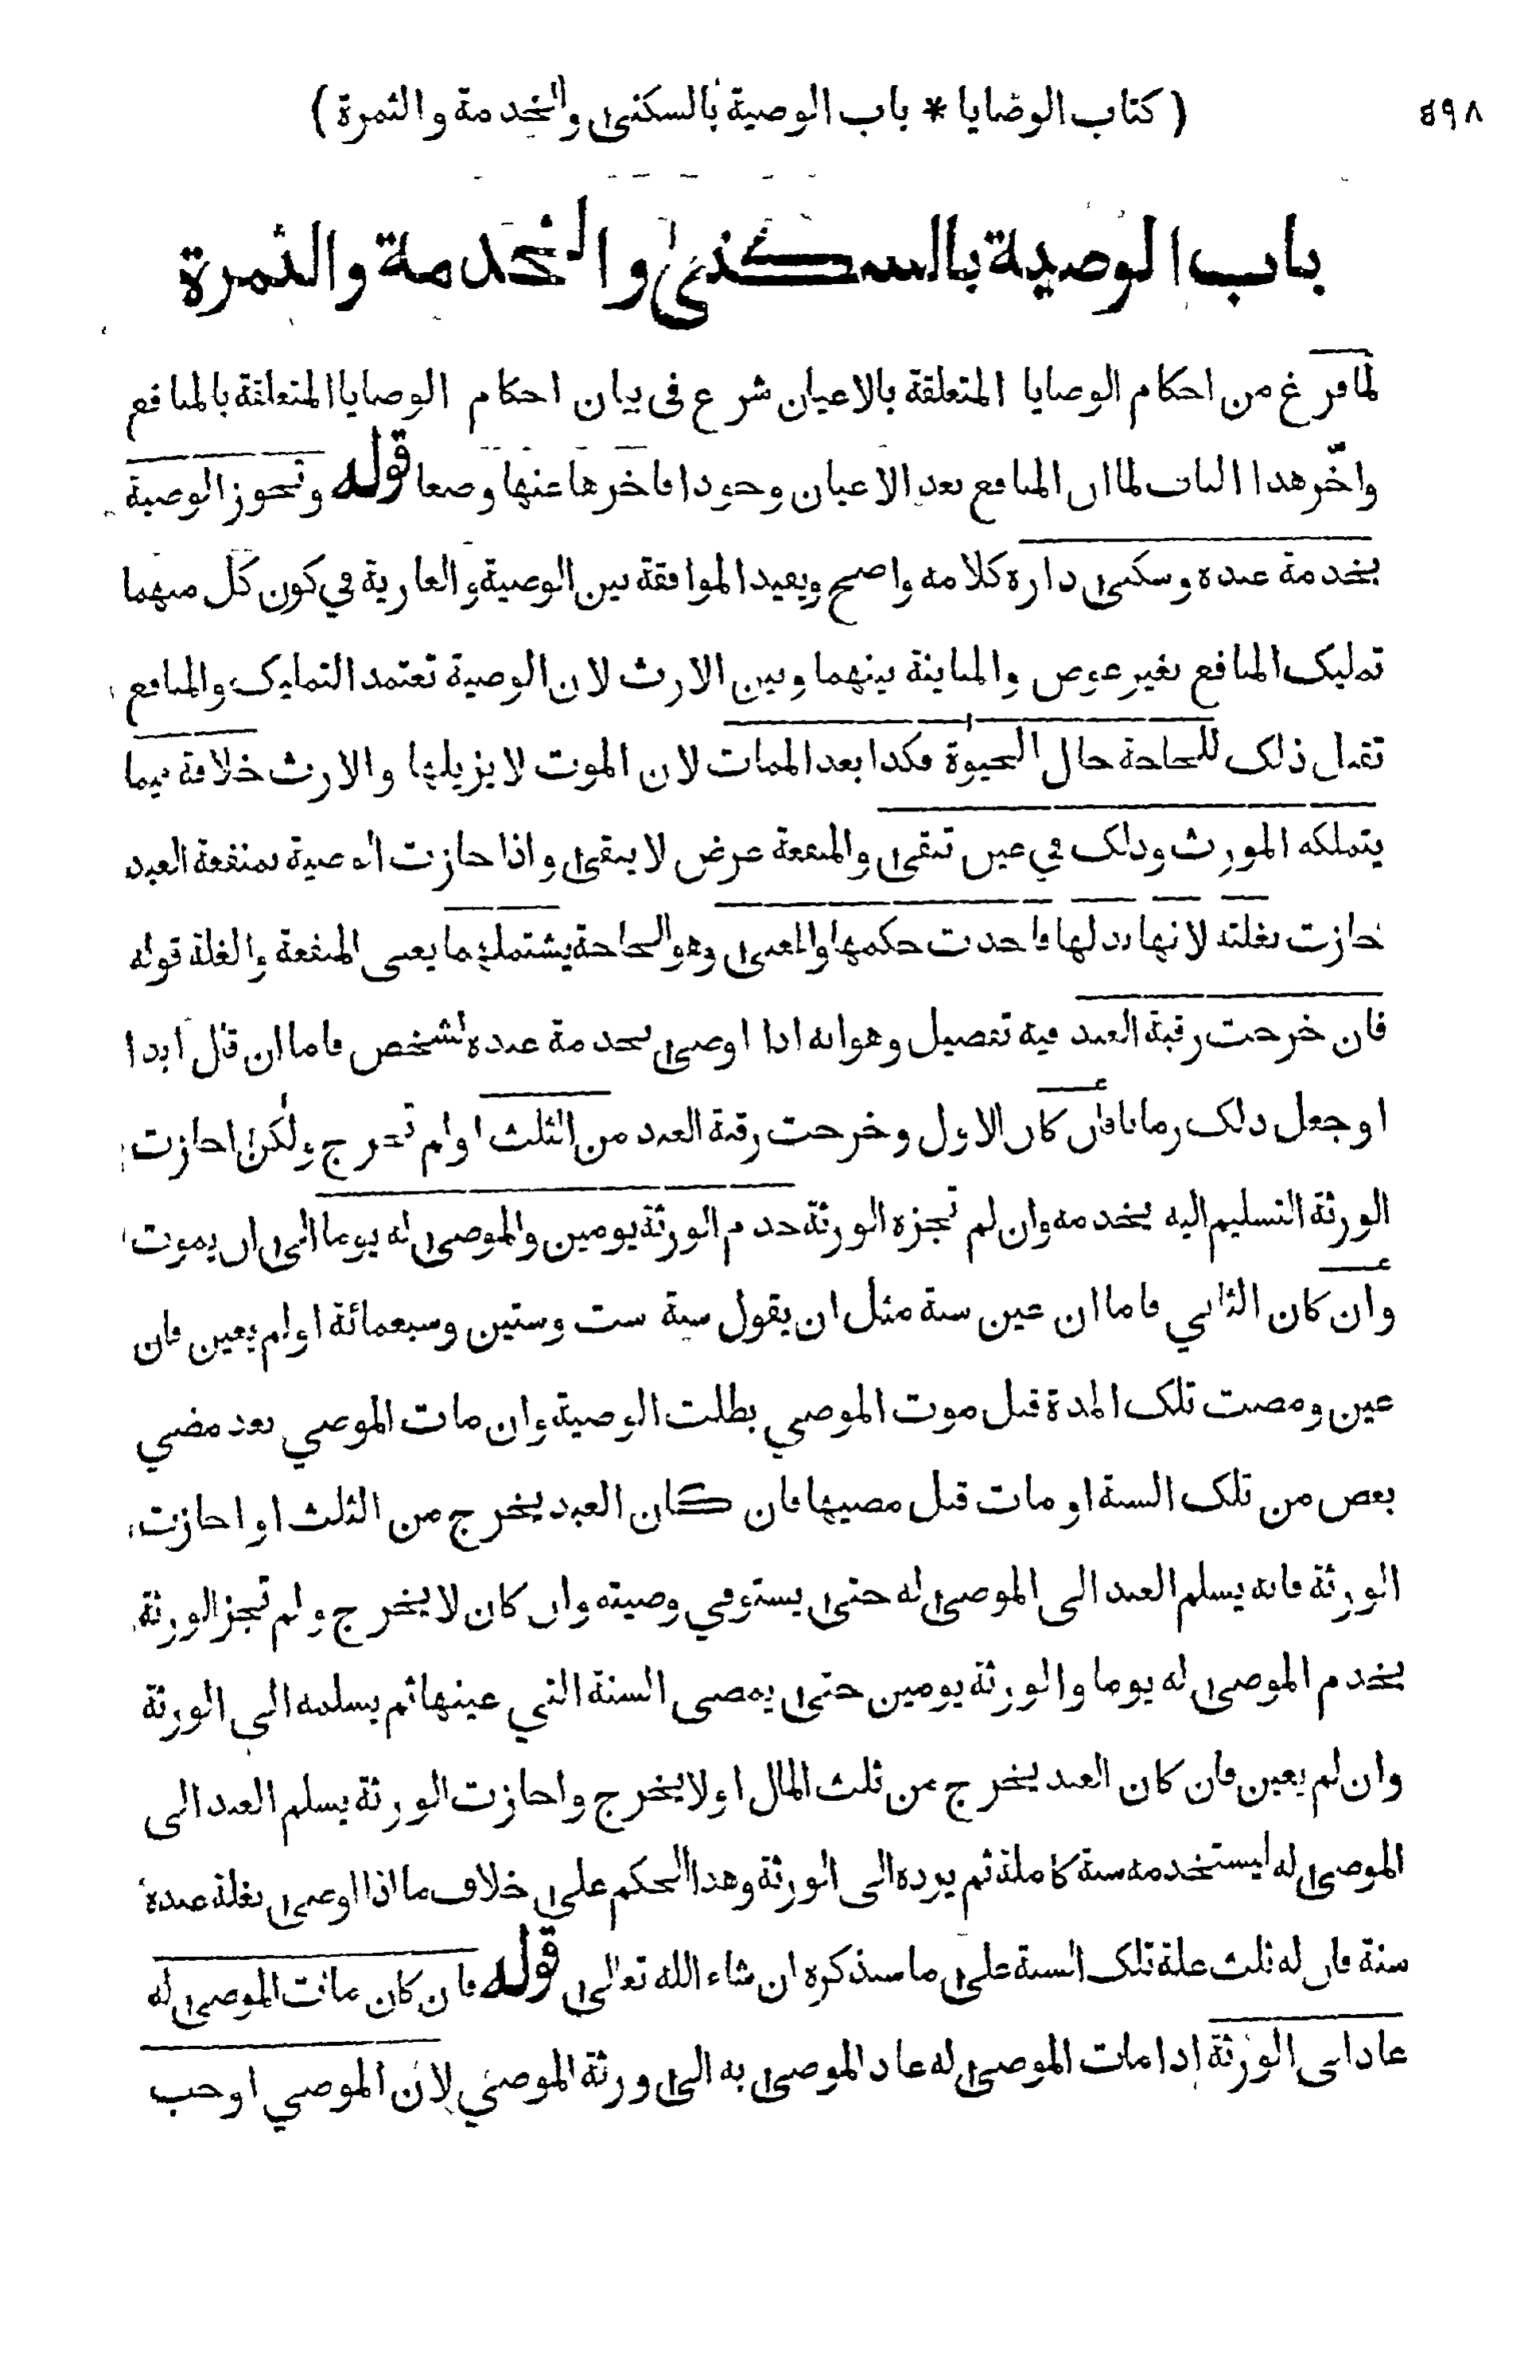 ٤٩٨
( كتاب الوصايا * باب الوصية بالسكنى والخدمة والثمرة )
باب الوصية بالسكنى والخدمة والثمرة
لما فرغ من احكام الوصايا المتعلقة بالاعيان شرع في بيان احكام الوصايا المتعلقة بالمنافع
واخّر هذا الباب لما ان المنافع بعد الاعيان وجودا فاخرها عنها وضعا قوله وتجوز الوصية
بخدمة عبده وسكنى داره كلامه واضح ويفيد الموافقة بين الوصية والعارية في كون كل منهما
تمليك المنافع بغير عوض والمباينة بينهما وبين الارث لان الوصية تعتمد التمليك والمنافع
تقبل ذلك للحاجة حال الحيوة فكذا بعد الممات لان الموت لا يزيلها والارث خلافة فيما
يتملكه المورث وذلك في عين تبقى والمنفعة عرض لا يبقى واذا جازت الوصية بمنفعة العبد
جازت بغلته لانها بدلها فاخذت حكمها والمعنى وهو الحاجة يشتملهما يعني المنفعة والغلة قوله
فان خرجت رقبة العبد فيه تفصيل وهو انه اذا اوصى بخدمة عبده لشخص فاما ان قال ابدا
او جعل ذلك زمانا فان كان الاول وخرجت رقبة العبد من الثلث او لم تخرج ولكن اجازت
الورثة التسليم اليه يخدمه وان لم تجزه الورثة خدم الورثة يومين والموصى له يوما الى ان يموت
وان كان الثاني فاما ان عين سنة مثل ان يقول سنة ست وستين وسبعمائة او لم يعين فان
عين ومضت تلك المدة قبل موت الموصي بطلت الوصية وان مات الموصي بعد مضي
بعض من تلك السنة او مات قبل مضيها فان كان العبد يخرج من الثلث او اجازت
الورثة فانه يسلم العبد الى الموصى له حتى يستوفي وصيته وان كان لا يخرج ولم تجز الورثة
يخدم الموصى له يوما والورثة يومين حتى يمضي السنة التي عينها ثم يسلمه الى الورثة
وان لم يعين فان كان العبد يخرج من ثلث المال او لا يخرج واجازت الورثة يسلم العبد الى
الموصى له ليستخدمه سنة كاملة ثم يرده الى الورثة وهذا الحكم على خلاف ما اذا اوصى بغلة عبده
سنة فان له ثلث غلة تلك السنة على ما سنذكره ان شاء الله تعالى قوله فان كان مات الموصى له
عاد الى الورثة اذا مات الموصى له عاد الموصى به الى ورثة الموصي لان الموصي اوجب